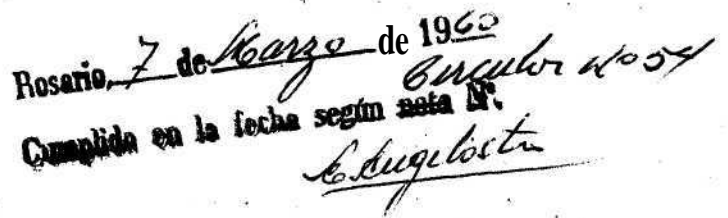 Rosario, 7 de Marzo de 1960
Circular Nº 54
Cumplido en la fecha según nota Nº.